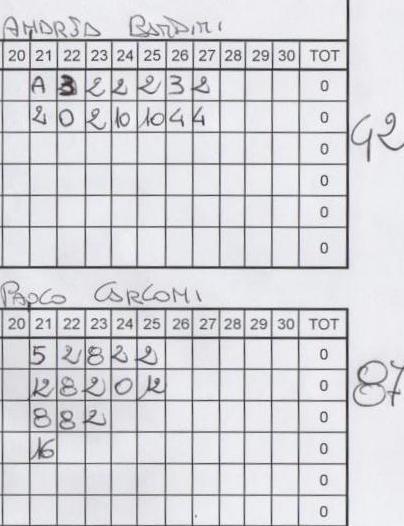 ANDREA BARDINI
20 21 22 23 24 25 26 27 28 29 30 TOT
A 3 2 2 2 3 2 0
2 0 2 10 10 4 4 0
0
0
0
0
42
PAOLO
20 21 22 23 24 25 26 27 28 29 30 TOT
5 2 8 2 2 0
12 8 2 0 12 0
8 8 2 0
16 0
0
0
87